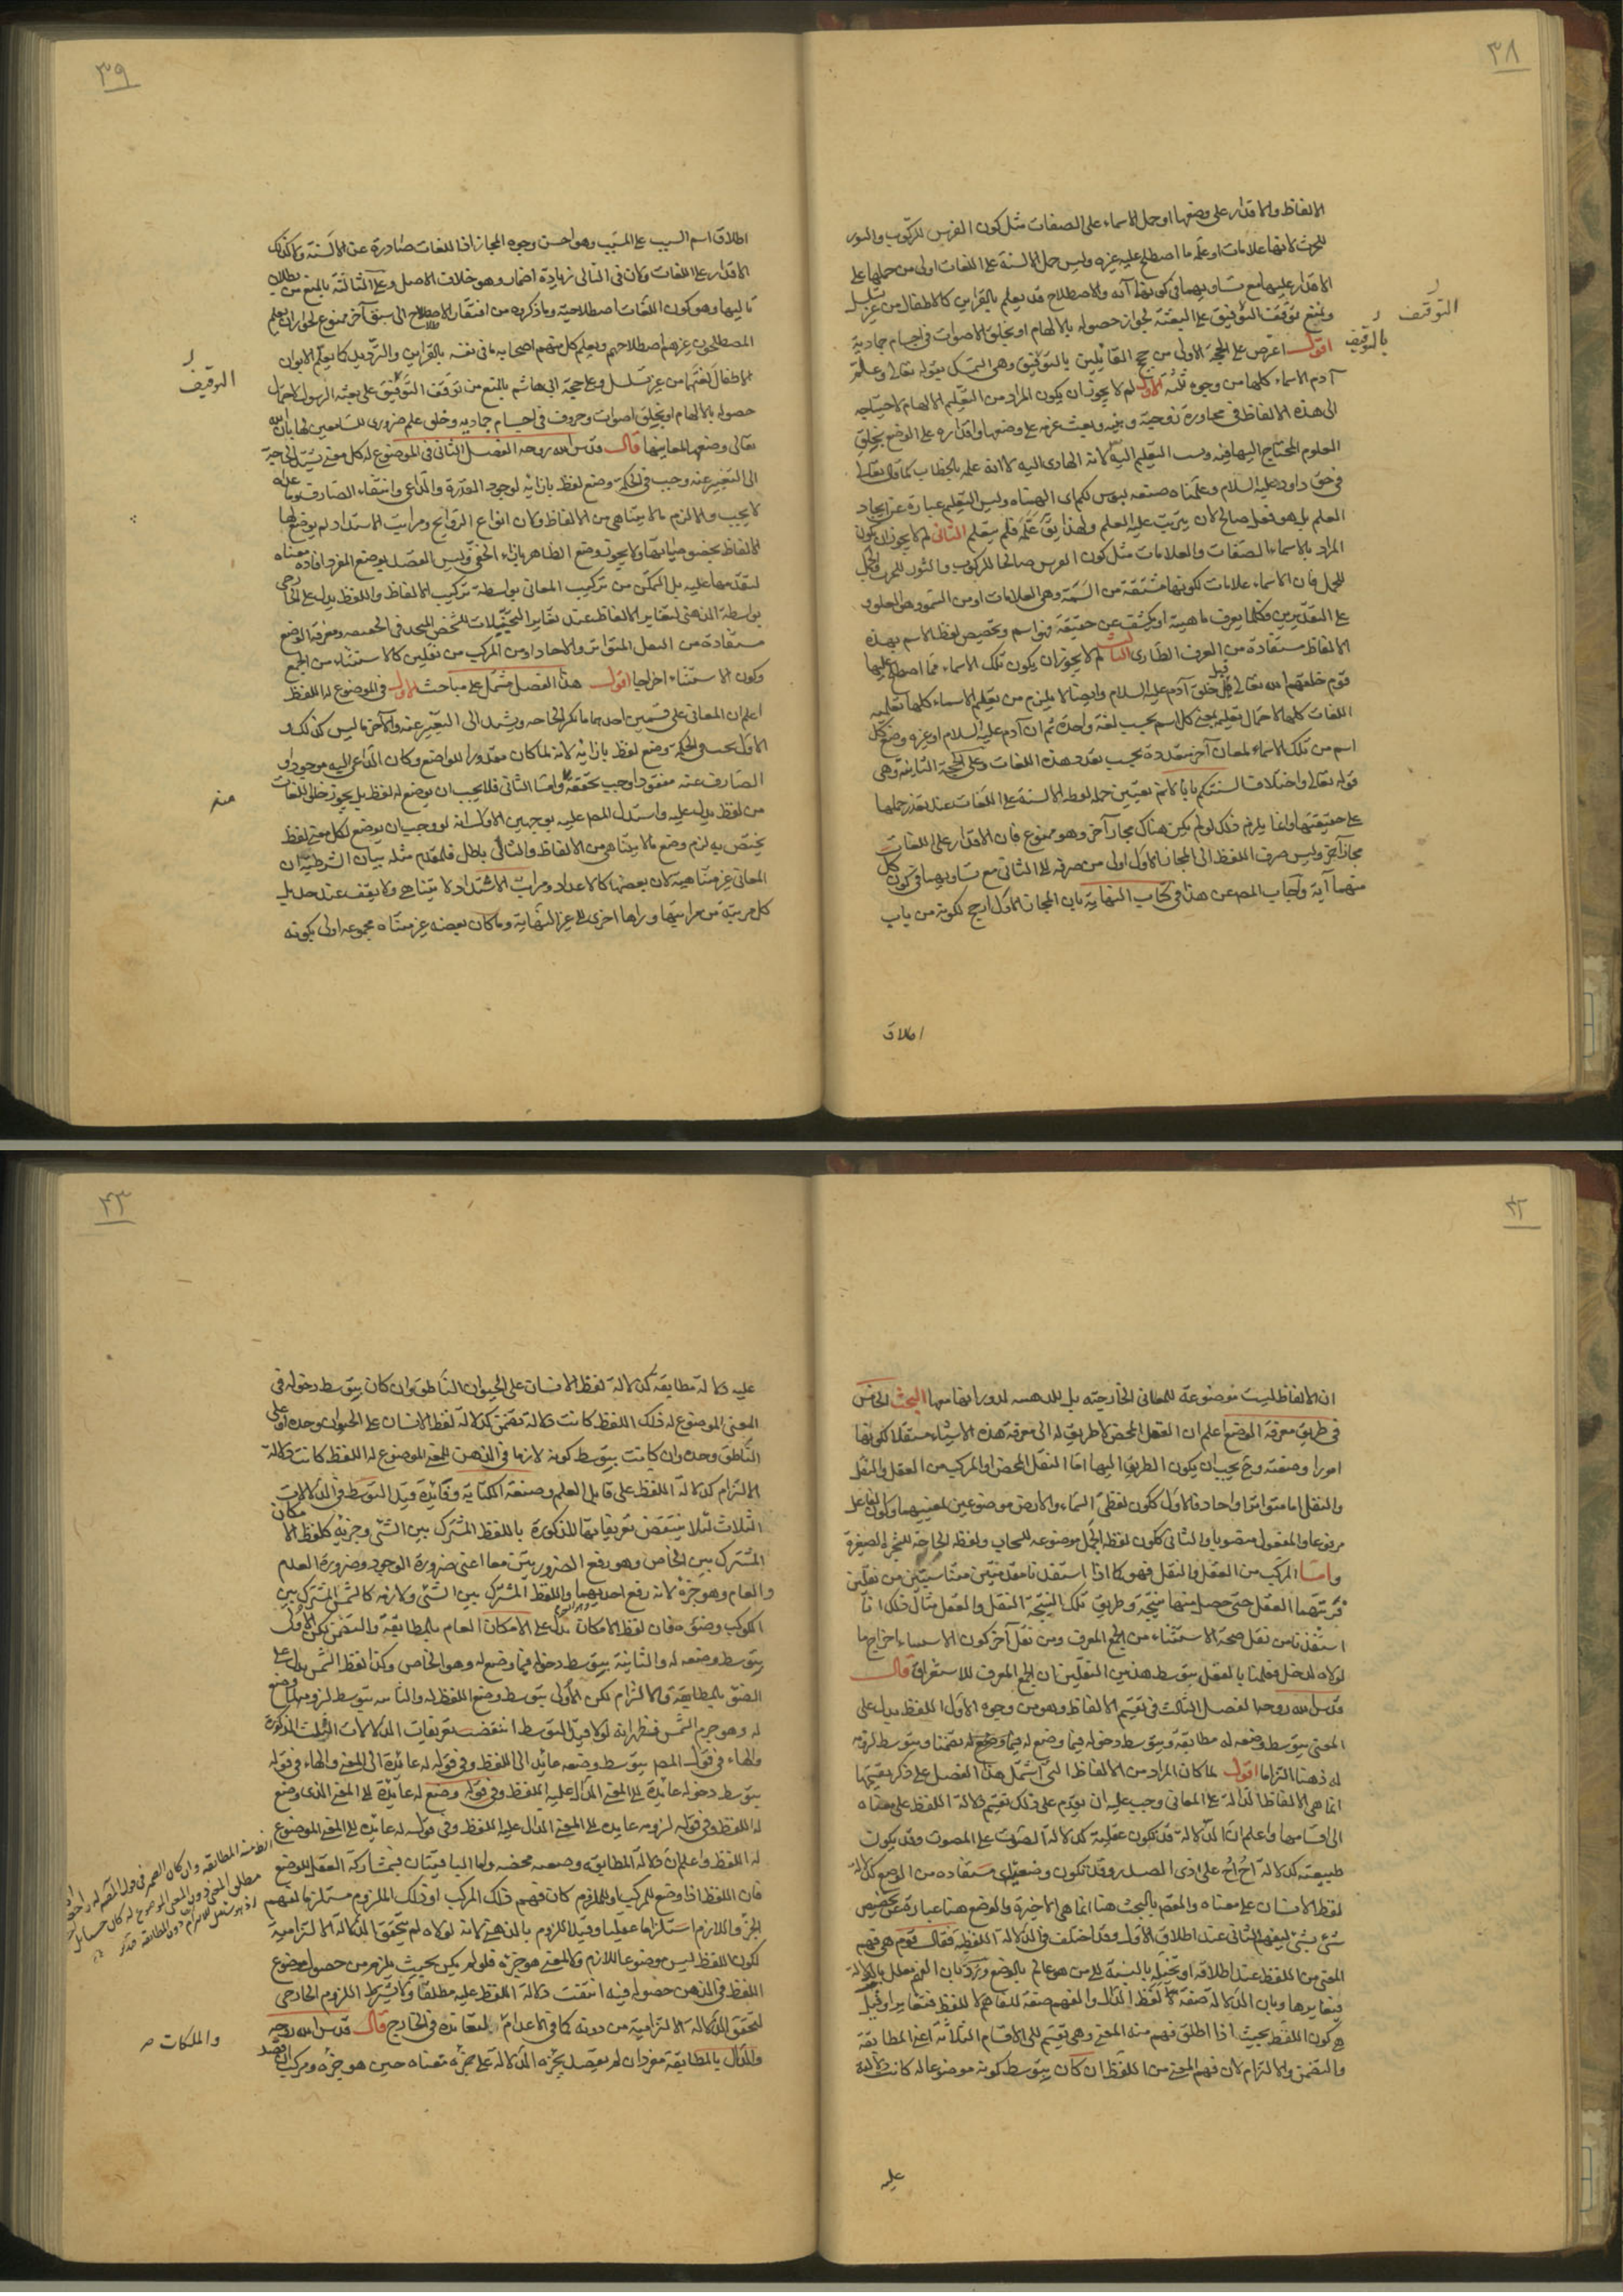 ٣٨
الالفاظ والاقدار على وضعها او حمل الاسماء على الصفات مثل كون الفرس للركوب والثور
للحرث لانها علامات او علّمه ما اصطلح عليه غيره وليس حمل الالسنة على اللغات اولى من حملها على
الاقدار عليها مع تساويهما في كونهما آية والاصطلاح قد يعلم بالقراين كالاطفال من غير تسلسل
ونمنع توقف التوقيف على البعثة لجواز حصوله بالالهام او بخلق الاصوات في اجسام جمادية
اقول اعترض على الحجة الاولى من حجج القائلين بالتوقيف وهي التمسك بقوله تعالى وعلّم
آدم الاسماء كلها من وجوه ثلثة الاول لم لا يجوز ان يكون المراد من التعليم الالهام لاحتياجه
الى هذه الالفاظ في محاورة زوجته وبنيه وبعث عزمه على وضعها واقداره على الوضع بخلق
العلوم المحتاج اليها فيه ونسب التعليم اليه لانه الهادى اليه لا انه علمه بالخطاب كما قال تعالى
فى حق داود عليه السلام وعلمناه صنعة لبوس لكم اى الهمناه وليس التعليم عبارة عن ايجاد
العلم بل هو فعل صالح لان يترتب عليه العلم ولهذا يق علّمته فلم يتعلم الثانى لم لا يجوز ان يكون
المراد بالاسماء الصفات والعلامات مثل كون الفرس صالحا للركوب والثور للحرث والجمل
للحمل فان الاسماء علامات لكونها مشتقة من السمة وهى العلامات او من السمو وهو العلو و
على التقديرين فكلما يعرف ماهية او يكشف عن حقيقة فهو اسم وتخصيص لفظ الاسم بهذه
الالفاظ مستفادة من العرف الطارى الثالث لم لا يجوز ان يكون تلك الاسماء مما اصطلح عليها
قوم خلقهم الله تعالى قبل خلق آدم عليه السلام وايضا لا يلزم من تعليم الاسماء كلها تعليمه
اللغات كلها لاحتمال تعليمه بمعنى كل اسم بحسب لغة واحدة ثم ان آدم عليه السلام او غيره وضع كل
اسم من تلك الاسماء لمعان آخر متعددة بحسب تعدد هذه اللغات وعلى الحجة الثانية وهى
قوله تعالى واختلاف السنتكم بانا لانم تعيين حمله لفظ الالسنة على اللغات عند تعذر حملها
على حقيقتها وانما يلزم ذلك لو لم يكن هناك مجاز آخر وهو ممنوع فان الاقدار على اللغات
مجاز آخر وليس صرف اللفظ الى المجاز الاول اولى من صرفه الى الثانى مع تساويهما فى كون كل
منهما آية واجاب المصـ عن هذا فى كتاب النهاية بان المجاز الاول ارجح لكونه من باب
اطلاق
التوقيف
بالتوقيف
٣٩
اطلاق اسم السبب على المسبب وهو احسن وجوه المجاز اذ اللغات صادرة عن الالسنة ولا كذلك
الاقدار على اللغات ولان فى الثانى زيادة اضمار وهو خلاف الاصل وعلى الثالثة بالمنع من بطلان
تاليها وهو كون اللغات اصطلاحية وما ذكروه من افتقار الاصطلاح الى سبق آخر ممنوع لجواز ان يعلم
المصطلحون غيرهم اصطلاحهم ويعلم كل منهم اصحابه ما فى نفسه بالقراين والترديد كما يعلم الابوان
الاطفال لغتهما من غير تسلسل وعلى حجة ابى هاشم بالمنع من توقف التوقيف على بعثة الرسول لاحتمال
حصوله بالالهام او بخلق اصوات وحروف فى اجسام جمادية وخلق علم ضرورى للسامعين لها بان الله
تعالى وضعها لمعانيها قال قدس الله روحه الفصل الثانى فى الموضوع له كل معنى تشتد الحاجة
الى التعبير عنه وجب فى الحكمة وضع لفظ بازائه لوجود القدرة والداعى وانتفاء الصارف وما عداه
لا يجب والا لزم ما لا يتناهى من الالفاظ ولان انواع الروايح ومراتب الاشتداد لم يوضع لها
الالفاظ بخصوصياتها ولا يجوز وضع الظاهر بازاء الخفى وليس القصد بوضع المفرد افادة معناه
لتقدمها عليه بل التمكن من تركيب المعانى بواسطة تركيب الالفاظ واللفظ يدل على الخارجى
بواسطة الذهنى لتغاير الالفاظ عند تغاير التخيلات للشخص المتحد فى الحقيقة ومعرفة الوضع
مستفادة من النقل المتواتر والاحاد او من المركب من نقلين كالاستثناء من الجمع
وكون الاستثناء اخراجا اقول هذا الفصل مشتمل على مباحث الاول فى الموضوع له اللفظ
اعلم ان المعانى على قسمين احدهما ما تكثر الحاجة ويشتد الى التعبير عنه والآخر ما ليس كذلك و
الاول يجب فى الحكمة وضع لفظ بازائه لانه لما كان مقدورا للواضع وكان الداعى اليه موجودا و
الصارف عنه مفقودا وجب تحققه واما الثانى فلا يجب ان يوضع له لفظ بل يجوز خلو اللغات
من لفظ يدل عليه واستدل المصـ عليه بوجهين الاول انه لو وجب ان يوضع لكل معنى لفظ
يختص به لزم وضع ما لا يتناهى من الالفاظ والتالى باطل فالمقدم مثله بيان الشرطية ان
المعانى غير متناهية لان بعضها كالاعداد ومراتب الاشتداد لا يتناهى ولا يقف عند حد بل
كل مرتبة من مراتبها وراءها اخرى الى غير النهاية وما كان بعضه غير متناه مجموعه اولى بكونه
التوقيف
منه
٤٢
ان الالفاظ ليست موضوعة للمعانى الخارجية بل للذهنية لدورانها معها البحث الخامس
فى طريق معرفة الوضع اعلم ان العقل المحض لا طريق له الى معرفة هذه الاشياء مستقلا لكونها
امورا وضعية وح يجب ان يكون الطريق اليها اما النقل المحض او المركب من العقل والنقل
والنقل اما متواتر او احاد فالاول ككون لفظى السماء والارض موضوعين لمعنييهما وكون الفاعل
مرفوعا والمفعول منصوبا والثانى ككون لفظ الجمل موضوعه للسحاب ولفظ الخارجة للشجرة الصغيرة
واما المركب من العقل والنقل فهو كما اذا استفدنا مقدمتين متناسبتين من نقلين
فرتبهما العقل حتى حصل منهما نتيجة وطريق تلك النتيجة النقل والعقل مثال ذلك انا
استفدنا من نقل صحة الاستثناء من الجمع المعرف ومن نقل آخر كون الاستثناء اخراج ما
لولاه لدخل فعلمنا بالعقل بتوسط هذين النقلين ان الجمع المعرف للاستغراق قال
قدس الله روحه الفصل الثالث فى تقسيم الالفاظ وهو من وجوه الاول اللفظ يدل على
المعنى بتوسط وضعه له مطابقة وبتوسط دخوله فيما وضع له تضمنا وبتوسط لزومه
له ذهنا التزاما اقول لما كان المراد من الالفاظ التى اشتمل هذا الفصل على ذكر تقسيمها
انما هى الالفاظ الدالة على المعانى وجب عليه ان يقدم على ذلك تقسيم دلالة اللفظ على معناه
الى اقسامها واعلم ان الدلالة قد تكون عقلية كدلالة الصوت على المصوت وقد يكون
طبيعية كدلالة اخ اخ على اذى الصدر وقد تكون وضعية اى مستفادة من الوضع كدلالة
لفظ الانسان على معناه والمقصم بالبحث هنا انما هى الاخيرة والوضع هنا عبارة عن تخصيص
شئ بشئ ليفهم الثانى عند اطلاق الاول وقد اختلف فى الدلالة اللفظية فقال قوم هى فهم
المعنى من اللفظ عند اطلاقه او تخيله بالنسبة الى من هو عالم بالوضع ورد بان الفهم معلل بالدلالة
فيغايرها وبان الدلالة صفة للفظ الدال والفهم صفة للفاهم لا للفظ فتغايرا وقيل
هى كون اللفظ بحيث اذا اطلق فهم منه المعنى وهى تقسم الى الاقسام الثلاثة اعنى المطابقة
والتضمن والالتزام لان فهم المعنى من اللفظ ان كان بتوسط كونه موضوعا له كانت دلالته
عليه
٤٣
عليه دلالة مطابقة كدلالة لفظ الانسان على الحيوان الناطق وان كان بتوسط دخوله فى
المعنى الموضوع له ذلك اللفظ كانت دلالة تضمن كدلالة لفظ الانسان على الحيوان وحده او على
الناطق وحده وان كانت بتوسط كونه لازما فى الذهن للمعنى الموضوع له اللفظ كانت دلالة
الالتزام كدلالة اللفظ على قابل العلم وصنعة الكتابة وفائدة قيد التوسط فى الدلالات
الثلاث لئلا ينتقض تعريفاتها المذكورة باللفظ المشترك بين الشئ وجزئه كلفظ الامكان
المشترك بين الخاص وهو رفع الضرورتين معا اعنى ضرورة الوجود وضرورة العدم
والعام وهو جزؤه لانه رفع احديهما واللفظ المشترك بين الشئ ولازمه كالشمس المشترك بين
الكوكب وضوءه فان لفظ الامكان يدل على الامكان العام بالمطابقة والتضمن لكن الاول
بتوسط وضعه له والثانية بتوسط دخوله فيما وضع له وهو الخاص وكذا لفظ الشمس يدل على
الضوء بالمطابقة والالتزام لكن الاولى بتوسط وضع اللفظ له والثانية بتوسط لزومه لما وضع
له وهو جرم الشمس فظهر انه لولا قيد التوسط انتقضت تعريفات الدلالات الثلث المذكورة
والهاء فى قول المصـ بتوسط وضعه عائد الى اللفظ وفى قوله له عائدة الى المعنى والهاء فى قوله
بتوسط دخوله عائدة الى المعنى الدال عليه اللفظ وفى قوله وضع له عائدة الى المعنى الذى وضع
له اللفظ وفى قوله لزومه عايدة الى المعنى الدال عليه اللفظ وفى قوله له عايدة الى المعنى الموضوع
له اللفظ واعلم ان دلالة المطابقة وضعية محضه واما الباقيتان فبمشاركة العقل للوضع
فان اللفظ اذا وضع للمركب او للملزوم كان فهم ذلك المركب او ذلك الملزوم مستلزما لفهم
الجزء واللازم استلزاما عقليا وقيد اللزوم بالذهنى لانه لولاه لم يتحقق الدلالة الالتزامية
لكون اللفظ ليس موضوعا للازم ولا لمعنى هو جزؤه فلو لم يكن بحيث يلزم من حصول موضوع
اللفظ فى الذهن حصوله فيه انتفت دلالة اللفظ عليه مطلقا ولا يشترط اللزوم الخارجى
لتحقق الدلالة الالتزامية من دونه كما فى الاعدام المتعاندة فى الخارج قال قدس الله روحه
والدال بالمطابقة مفرد ان لم يقصد بجزئه الدلالة على جزء معناه حين هو جزؤه ومركب ان قصد
والملكات ص